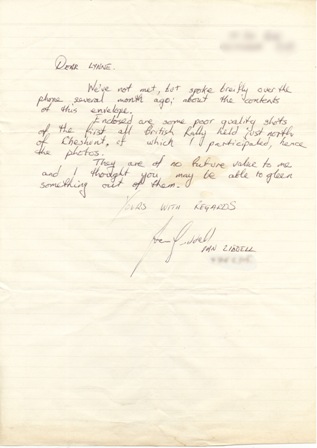 DEAR LYNNE.
We've not met, but spoke breifly over the
phone several month ago; about the contents
of this envelope.
Enclosed are some poor quality shots
of the first all British Rally held just north
of Cheshunt, of which I participated, hence
the photos.
They are of no future value to me
and I thought you, may be able to gleen
something out of them.
YOURS WITH REGARDS
IAN LIDDELL